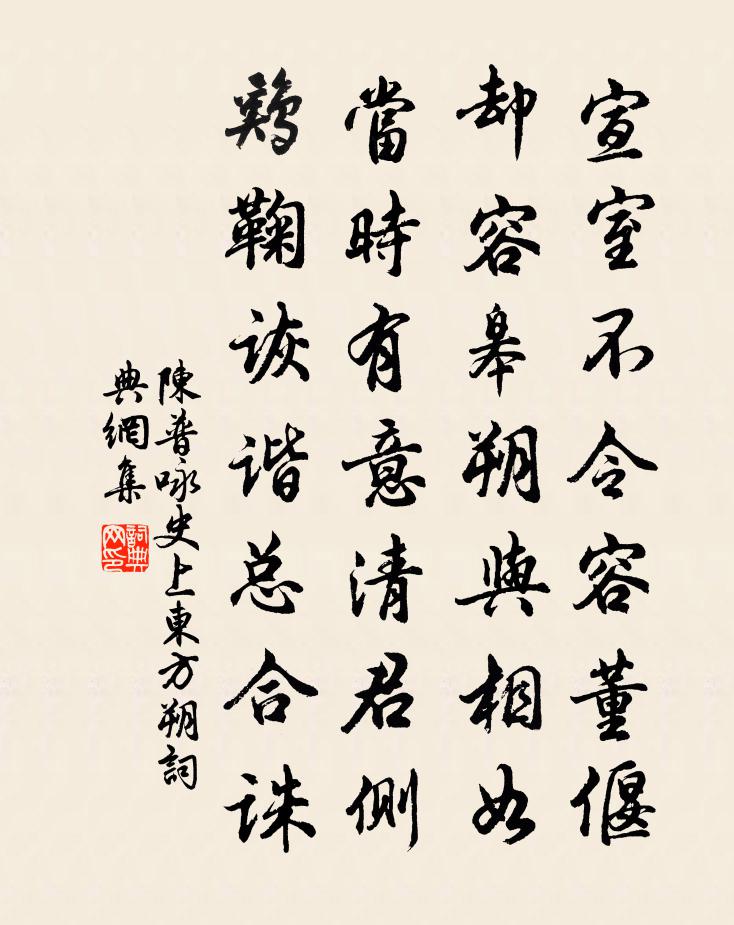 宣室不令容董偃
却容皋朔與相如
當時有意清君側
鷄鞠詼谐总合誅
陳普咏史上東方朔詞
典網集
詞典
网印